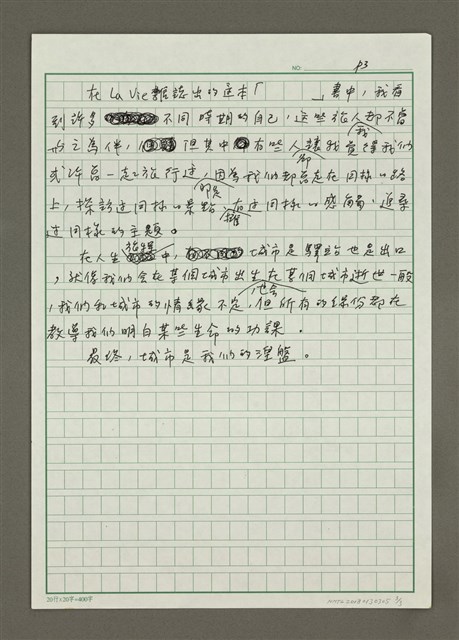 NO. P3
在La Vie雜誌出的這本「 」書中，我看
到許多不同時期的自己，這些旅人都不曾
與之為伴，但其中有些人卻讓我覺得我們
或許曾一起旅行過，因為我們都曾走在同樣的路
上，探訪過同樣的景點，有過同樣的感觸，追尋
過同樣的主題。
在人生旅程中，城市是驛站也是出口
，就像我們會在某個城市出生在某個城市逝世一般
，我們和城市的情緣不定，但所有的緣份都在
教導我們明白某些生命的功課。
最終，城市是我們的涅盤。
20行×20字=400字